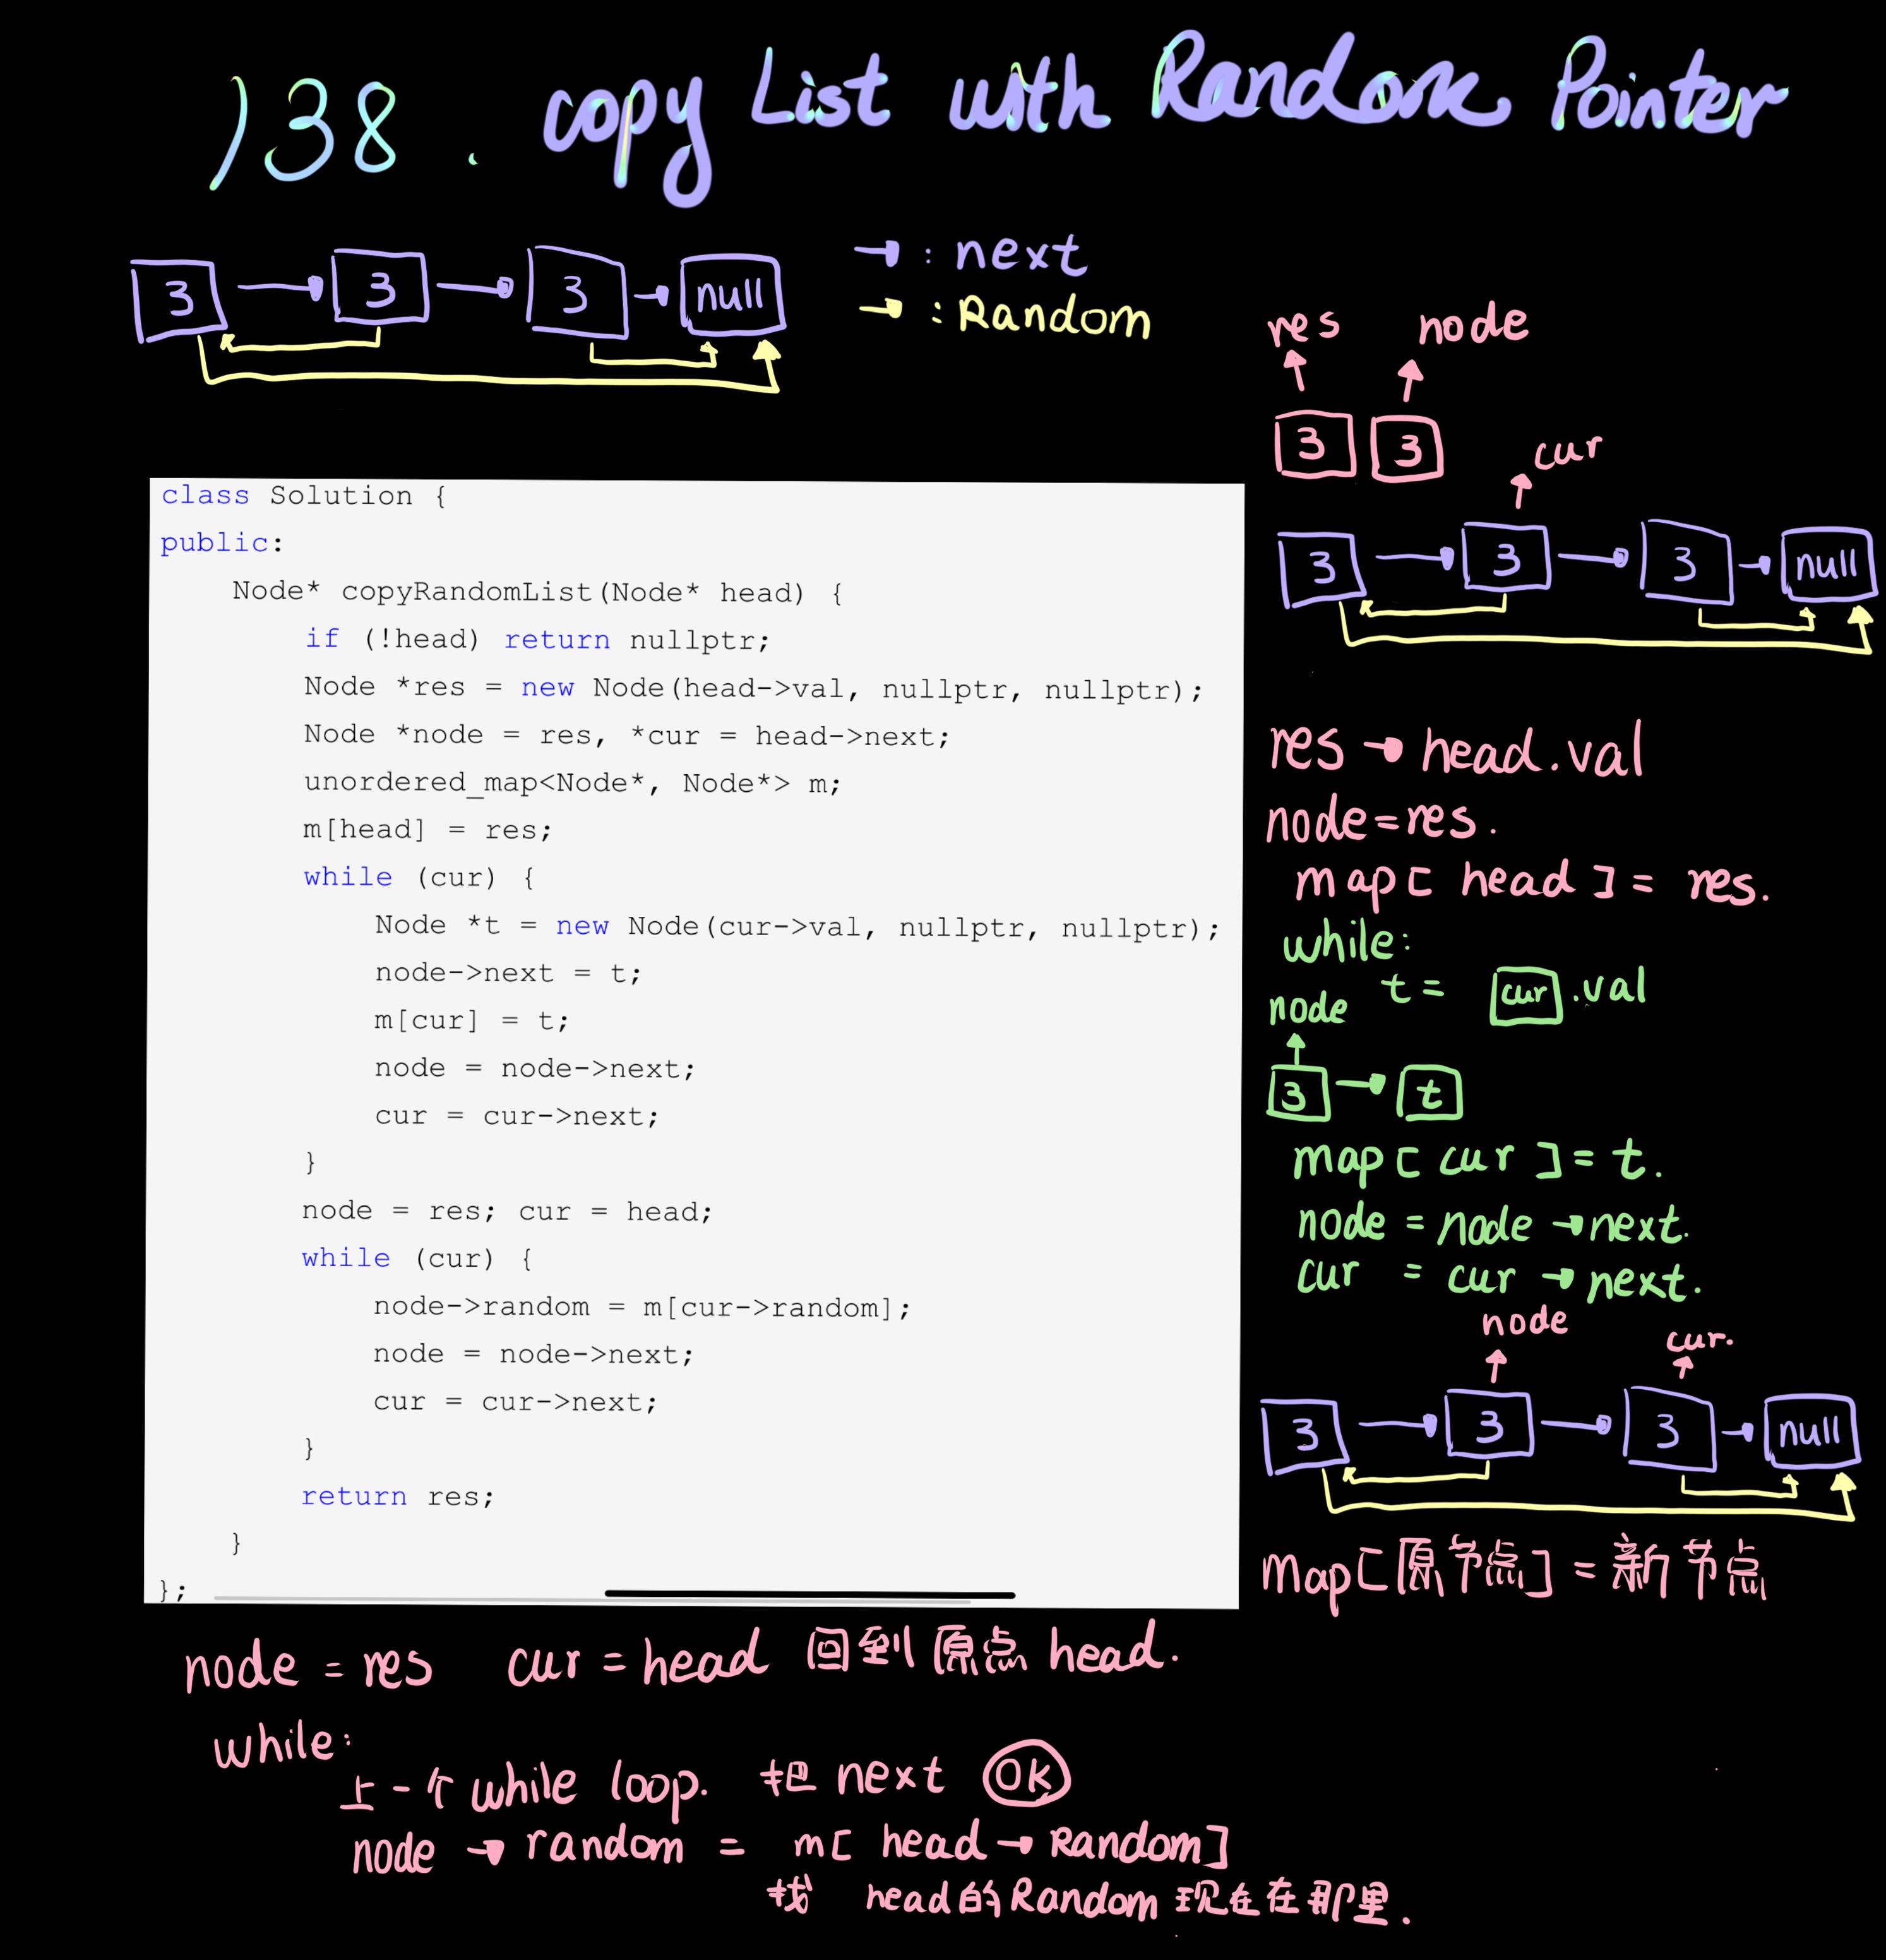 138. copy List with Random Pointer
3 3 3 null
→ : next
→ : Random
res node
3 3
cur
3 3 3 null
class Solution {
public:
    Node* copyRandomList(Node* head) {
        if (!head) return nullptr;
        Node *res = new Node(head->val, nullptr, nullptr);
        Node *node = res, *cur = head->next;
        unordered_map<Node*, Node*> m;
        m[head] = res;
        while (cur) {
            Node *t = new Node(cur->val, nullptr, nullptr);
            node->next = t;
            m[cur] = t;
            node = node->next;
            cur = cur->next;
        }
        node = res; cur = head;
        while (cur) {
            node->random = m[cur->random];
            node = node->next;
            cur = cur->next;
        }
        return res;
    }
};
res → head.val
node=res.
map[ head ] = res.
while:
t = cur.val
node
3 → t
map[ cur ] = t.
node = node → next.
cur = cur → next.
node cur.
3 3 3 null
Map[原节点] = 新节点
node = res cur = head 回到原点 head.
while:
上一个 while loop. 把 next OK
node → random = m[ head → Random]
找 head的Random 现在在那里.